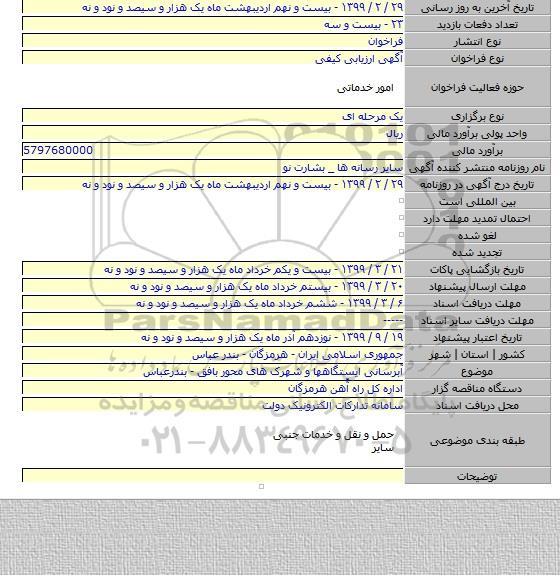 تاریخ آخرین به روز رسانی ۲۹ / ۲ / ۱۳۹۹ - بیست و نهم اردیبهشت ماه یک هزار و سیصد و نود و نه
تعداد دفعات بازدید ۲۳ - بیست و سه
نوع انتشار فراخوان
نوع فراخوان آگهی ارزیابی کیفی
حوزه فعالیت فراخوان امور خدماتی
نوع برگزاری یک مرحله ای
واحد پولی برآورد مالی ریال
برآورد مالی 5797680000
نام روزنامه منتشر کننده آگهی سایر رسانه ها _ بشارت نو
تاریخ درج آگهی در روزنامه ۲۹ / ۲ / ۱۳۹۹ - بیست و نهم اردیبهشت ماه یک هزار و سیصد و نود و نه
بین المللی است
احتمال تمدید مهلت دارد
لغو شده
تجدید شده
تاریخ بازگشایی پاکات ۲۱ / ۳ / ۱۳۹۹ - بیست و یکم خرداد ماه یک هزار و سیصد و نود و نه
مهلت ارسال پیشنهاد ۲۰ / ۳ / ۱۳۹۹ - بیستم خرداد ماه یک هزار و سیصد و نود و نه
مهلت دریافت اسناد ۶ / ۳ / ۱۳۹۹ - ششم خرداد ماه یک هزار و سیصد و نود و نه
مهلت دریافت سایر اسناد -----
تاریخ اعتبار پیشنهاد ۱۹ / ۹ / ۱۳۹۹ - نوزدهم آذر ماه یک هزار و سیصد و نود و نه
کشور | استان | شهر جمهوری اسلامی ایران - هرمزگان - بندر عباس
موضوع آبرسانی ایستگاهها و شهرک های محور بافق - بندرعباس
دستگاه مناقصه گزار اداره کل راه آهن هرمزگان
محل دریافت اسناد سامانه تدارکات الکترونیک دولت
طبقه بندی موضوعی حمل و نقل و خدمات جنبی
سایر
توضیحات
ParsNamadData
پایگاه اطلاع رسانی مناقصه و مزایده
۰۲۱-۸۸۳۴۹۶۷۰-۵